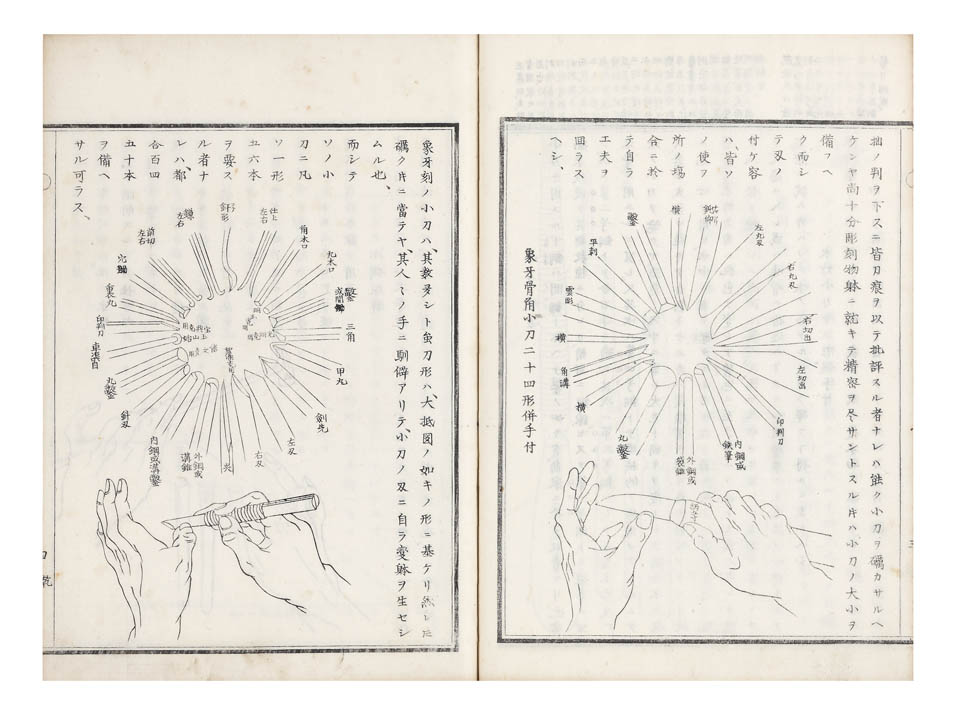 拙ノ判ヲ下スニ皆刀痕ヲ以テ批評スル者ナレハ能ク小刀ヲ礪カサルヘ
ケンヤ尚十分彫刻物躰ニ就キテ精密ヲ尽サントスル片ハ小刀ノ大小ヲ
備フヘ
ク而シ
テ刄ノ
付ケ容
ハ、皆ソ
ノ使フ
所ノ場
合ニ於
テ自ラ
工夫ヲ
回ラス
ヘシ、
左丸刄
右丸刄
右切出
左切出
印判刀
内鋼或
鉄筆
外鋼或
丸鑿
横
角溝
横
雲彫
平剌
鑿
横
象牙骨角小刀二十四形併手付
象牙刻ノ小刀ハ、其数多シト虽刀形ハ、大抵図ノ如キノ形ニ基ケリ然レ𪜈
礪ク片ニ當テヤ、其人〻ノ手ニ馴僻アリテ、小刀ノ刄ニ自ラ変躰ヲ生セシ
ムル也、
而シテ
ソノ小
刀ニ凡
ソ一形
五六本
ヲ要ス
ル者ナ
レハ、都
合百四
五十本
ヲ備ヘ
サル可ラス、
仕上
左右
角木口
丸木口
鑿
三角
甲丸
劍先
左刄
右刄
外鋼或
溝錐
内鋼或溝鑿
針刄
丸鑿
印判刀
前切
左右
左右
乾